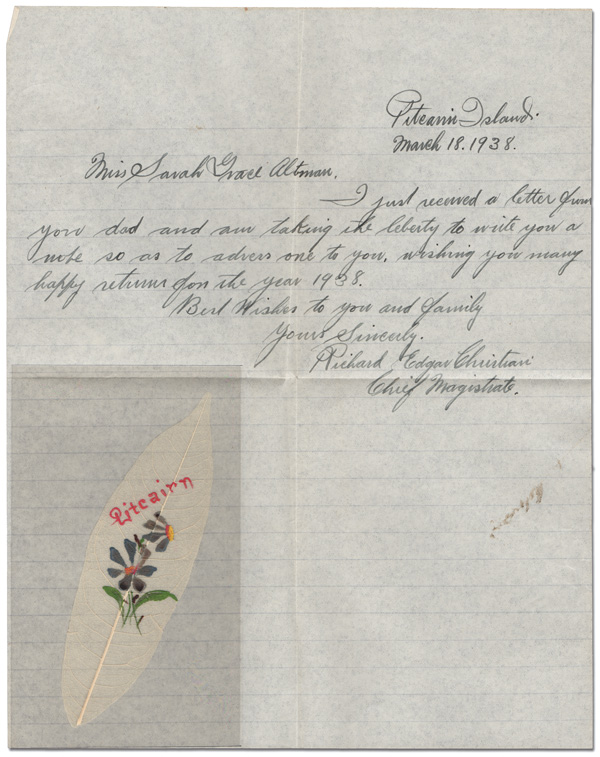 Pitcairn Island.
March 18. 1938.
Miss Sarah Grace Altman.
I just received a letter from
your dad and am taking the leberty to write you a
note so as to advers one to you. wishing you many
happy returns for the year 1938.
Best Wishes to you and family
Yours Sincerly.
Richard Edgar Christian
Chief Magistrate.
Pitcairn